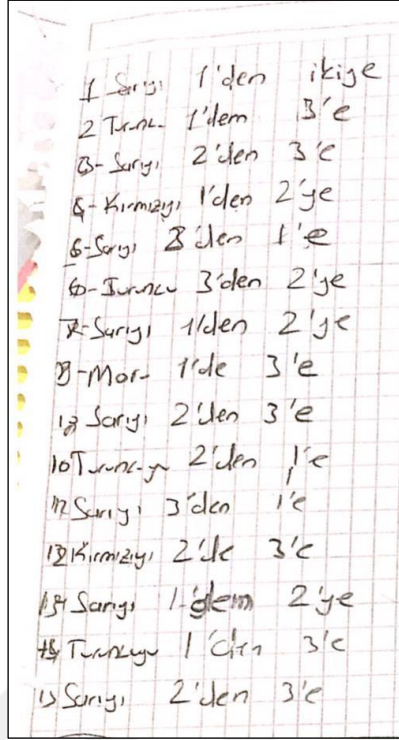 1 Sarıyı 1'den ikiye
2 Turunc. 1'dem 3'e
3-Sarıyı 2'den 3'e
4-Kırmızıyı 1'den 2'ye
5-Sarıyı 3'den 1'e
6-Turuncu 3'den 2'ye
7-Sarıyı 1'den 2'ye
8-Mor- 1'de 3'e
Sarıyı 2'den 3'e
10 Turuncuyu 2'den 1'e
11 Sarıyı 3'den 1'e
12 Kırmızıyı 2'de 3'e
Sarıyı 1'dem 2'ye
Turuncuyu 1'den 3'e
15 Sarıyı 2'den 3'e